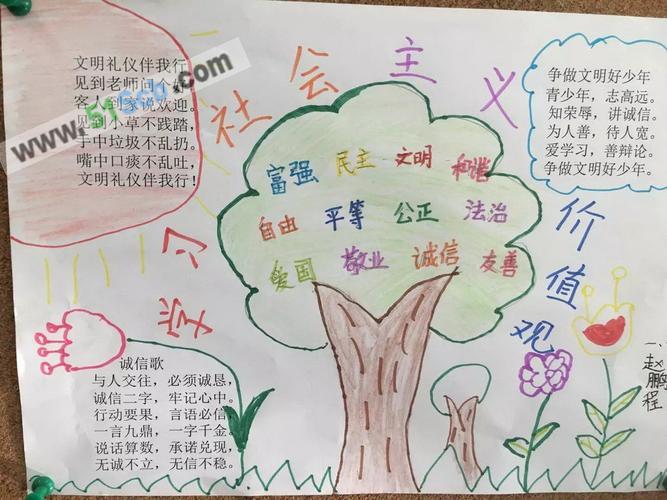 文明礼仪伴我行
见到老师问个好
客人到家说欢迎。
见到小草不践踏，
手中垃圾不乱扔。
嘴中口痰不乱吐，
文明礼仪伴我行！
www.51
学习社会主义价值观
富强 民主 文明 和谐
自由 平等 公正 法治
爱国 敬业 诚信 友善
争做文明好少年
青少年，志高远。
知荣辱，讲诚信。
为人善，待人宽。
爱学习，善辩论。
争做文明好少年。
诚信歌
与人交往，必须诚恳，
诚信二字，牢记心中。
行动要果，言语必信，
一言九鼎，一字千金。
说话算数，承诺兑现，
无诚不立，无信不稳。
一、赵鹏程